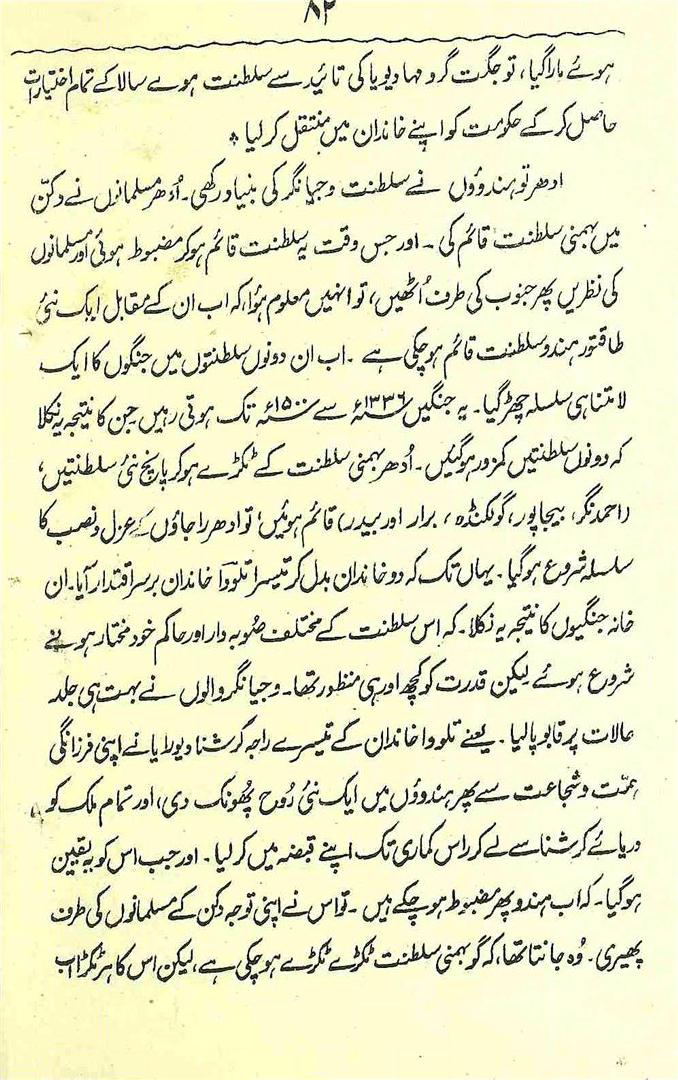 ۸۲
ہوئے مارا گیا، تو جگت گرو مہا دیویا کی تائید سے سلطنت ہوے سالا کے تمام اختیارات
حاصل کر کے حکومت کو اپنے خاندان میں منتقل کر لیا ٭
ادھر تو ہندوؤں نے سلطنت وجیانگر کی بنیاد رکھی۔ اُدھر مسلمانوں نے دکن
میں بہمنی سلطنت قائم کی۔ اور جس وقت یہ سلطنت قائم ہو کر مضبوط ہوئی اور مسلمانوں
کی نظریں پھر جنوب کی طرف اُٹھیں، تو انہیں معلوم ہوٗا، کہ اب ان کے مقابل ایک نئی
طاقتور ہندو سلطنت قائم ہو چکی ہے۔ اب ان دونوں سلطنتوں میں جنگوں کا ایک
لامتناہی سلسلہ چھڑ گیا۔ یہ جنگیں ۱۳۳۶ء سے ۱۵۰۰ء تک ہوتی رہیں جن کا نتیجہ یہ نکلا
کہ دونوں سلطنتیں کمزور ہو گئیں۔ اُدھر بہمنی سلطنت کے ٹکڑے ہو کر پانچ نئی سلطنتیں،
(احمد نگر، بیجاپور، گولکنڈہ، برار اور بیدر) قائم ہوئیں، تو ادھر راجاؤں کے عزل و نصب کا
سلسلہ شروع ہو گیا۔ یہاں تک کہ دو خاندان بدل کر تیسرا تلووا خاندان برسر اقتدار آیا۔ ان
خانہ جنگیوں کا نتیجہ یہ نکلا۔ کہ اس سلطنت کے مختلف صُوبہ دار اور حاکم خود مختار ہونے
شروع ہوئے لیکن قدرت کو کچھ اور ہی منظور تھا۔ وجیانگر والوں نے بہت ہی جلد
حالات پر قابو پا لیا۔ یعنے تلووا خاندان کے تیسرے راجہ کرشنا دیورایا نے اپنی فرزانگی
ہمّت و شجاعت سے پھر ہندوؤں میں ایک نئی رُوح پھُونک دی، اور تمام ملک کو
دریائے کرشنا سے لے کر راس کماری تک اپنے قبضہ میں کر لیا۔ اور جب اس کو یہ یقین
ہو گیا۔ کہ اب ہندو پھر مضبوط ہو چکے ہیں۔ تو اس نے اپنی توجہ دکن کے مسلمانوں کی طرف
پھیری۔ وُہ جانتا تھا، کہ گو بہمنی سلطنت ٹکڑے ٹکڑے ہو چکی ہے، لیکن اس کا ہر ٹکڑا اب